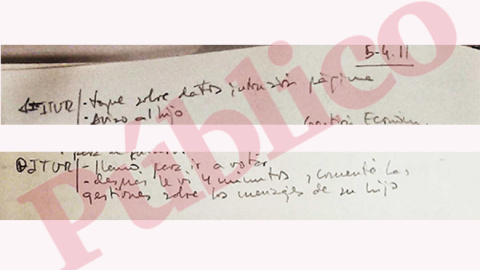 5-4.11
ITUR/- toque sobre datos intrusión página
- Aviso al hijo
Gestión Económ.
ITUR/- llamo para ir a votar
- despues le vi 4 minutos y comentó las
gestiones sobre los mensajes de su hijo
Público